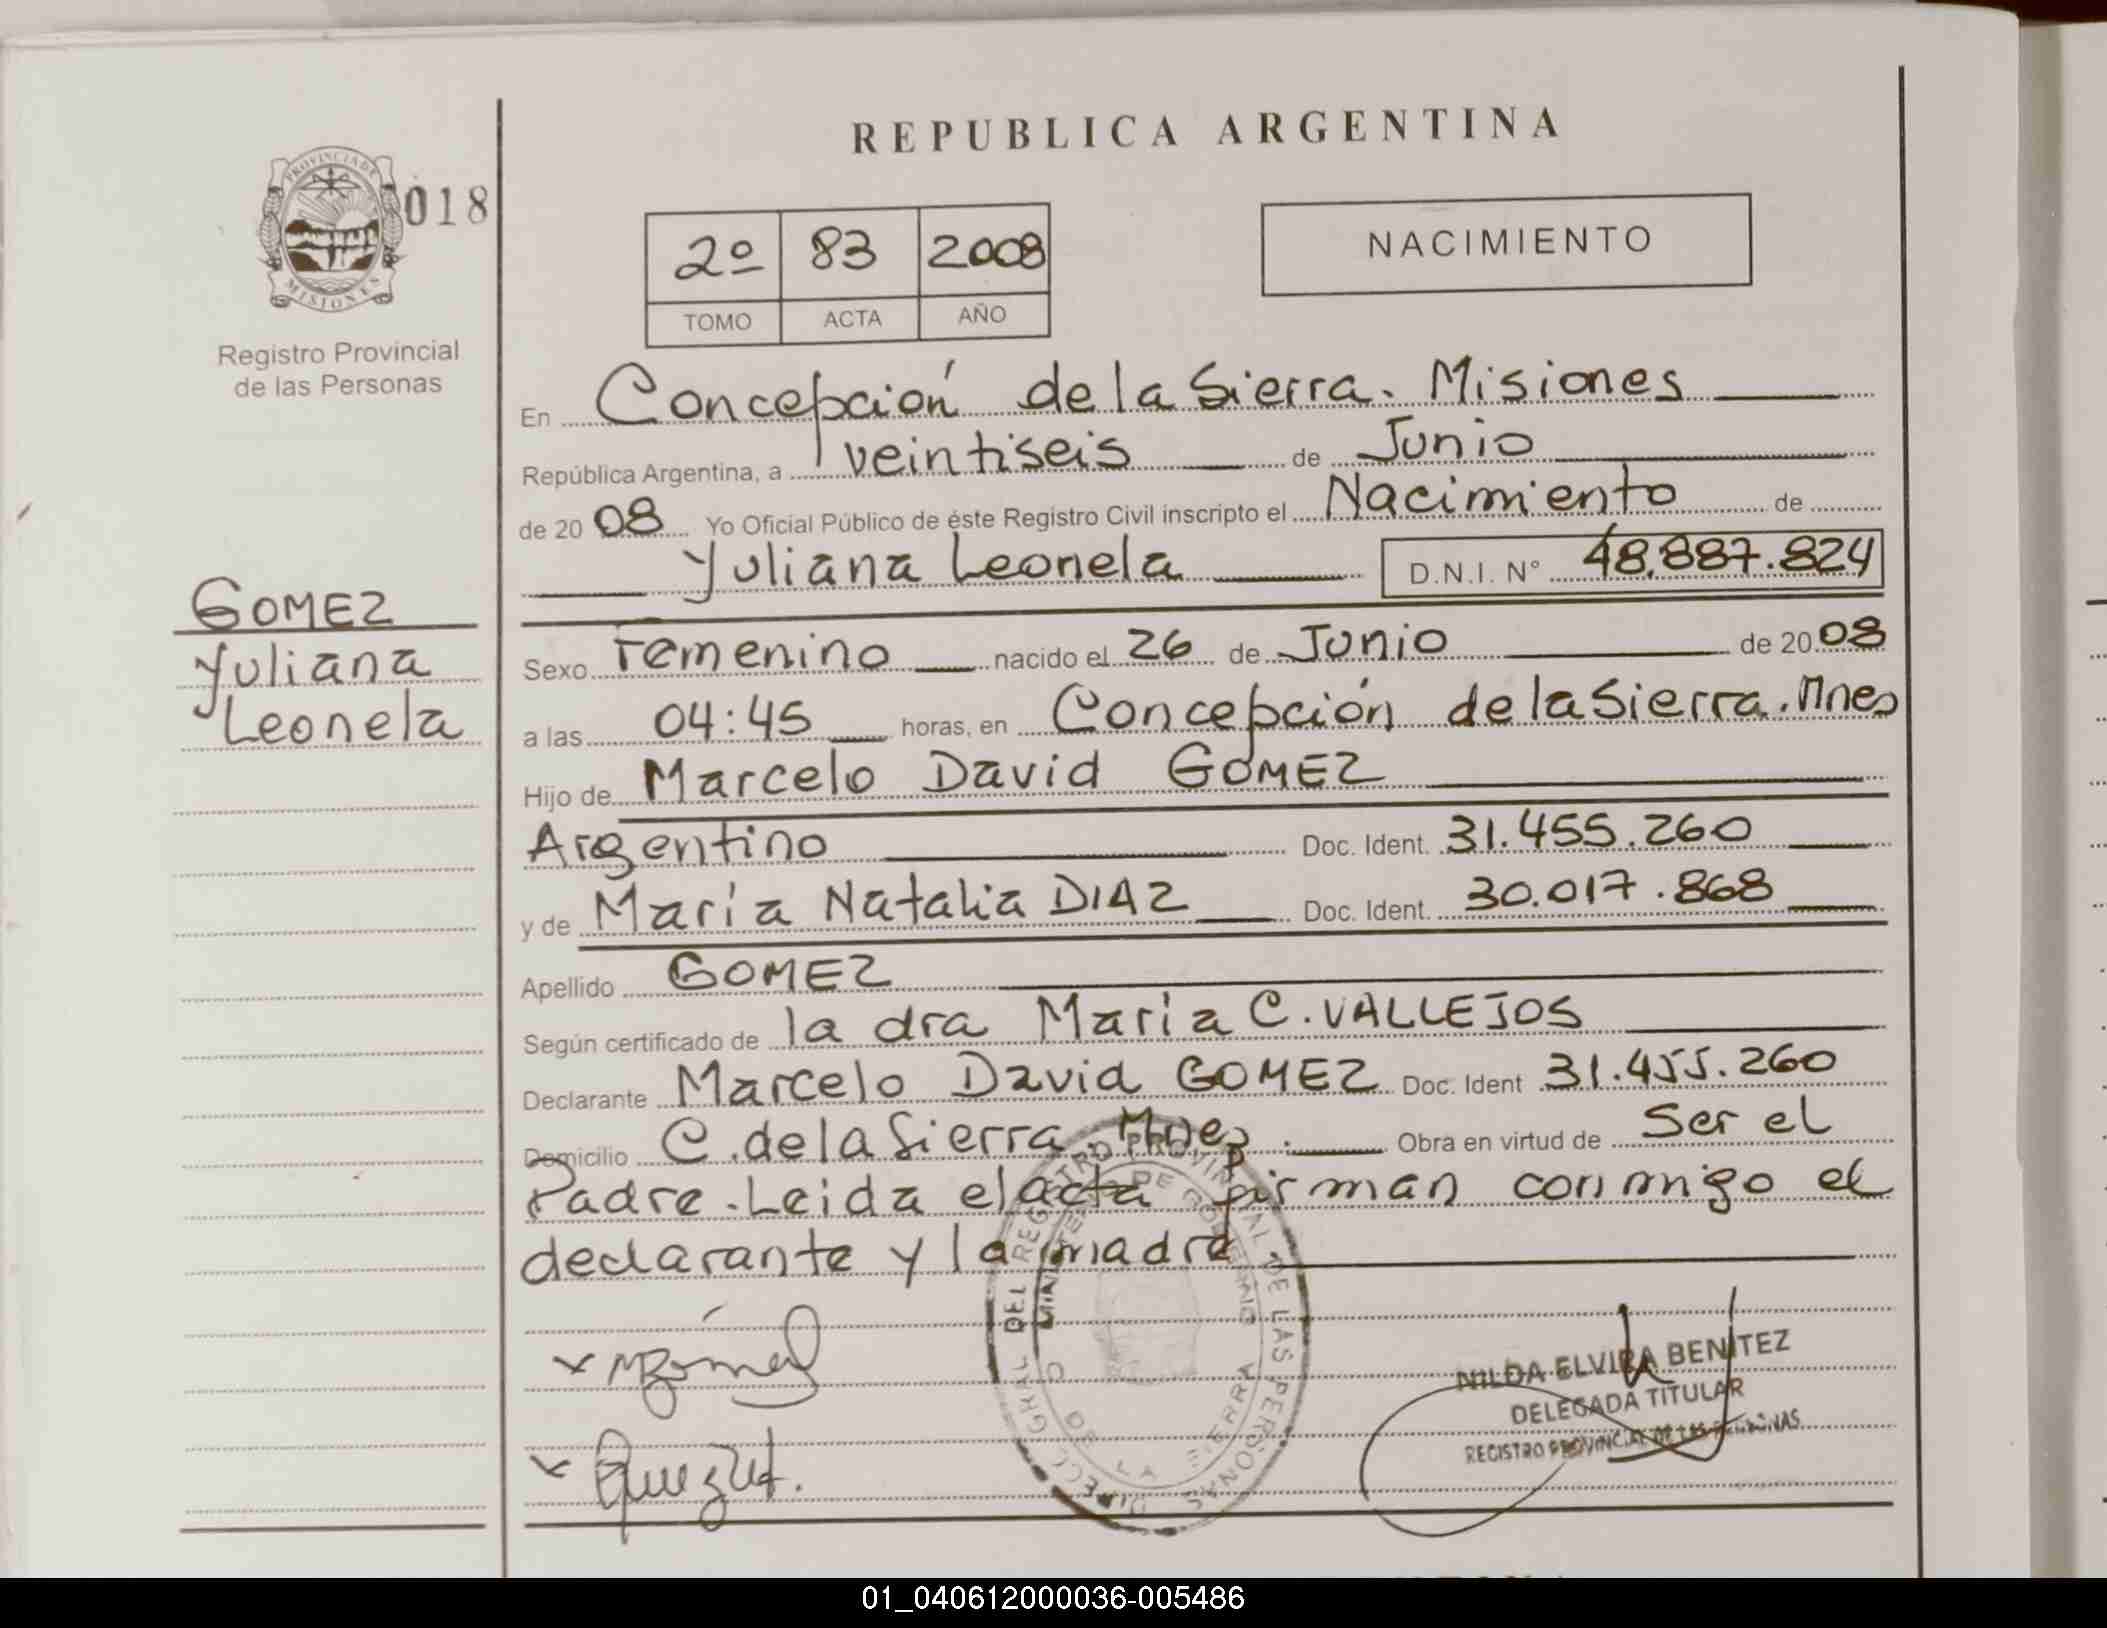 REPUBLICA ARGENTINA
PROVINCIA DE
MISIONES
018
Registro Provincial
de las Personas
2º 83 2008
TOMO ACTA AÑO
NACIMIENTO
En Concepción de la Sierra. Misiones
República Argentina, a veintiseis de Junio
de 2008 Yo Oficial Público de éste Registro Civil inscripto el Nacimiento de
Yuliana Leonela D.N.I. Nº 48.887.824
GOMEZ
Yuliana
Leonela
Sexo Femenino nacido el 26 de Junio de 2008
a las 04:45 horas, en Concepción de la Sierra. Mnes
Hijo de Marcelo David GOMEZ
Argentino Doc. Ident. 31.455.260
y de María Natalia DIAZ Doc. Ident. 30.017.868
Apellido GOMEZ
Según certificado de la dra María C. VALLEJOS
Declarante Marcelo David GOMEZ Doc. Ident 31.455.260
Domicilio C. de la Sierra. Mnes. Obra en virtud de Ser el
Padre. Leida el acta firman conmigo el
declarante y la madre
DIREC. GRAL DEL REGISTRO PROVINCIAL DE LAS PERSONAS
MINISTERIO DE GOBIERNO
C. DE LA SIERRA
NILDA ELVIRA BENITEZ
DELEGADA TITULAR
REGISTRO PROVINCIAL DE LAS PERSONAS
01_040612000036-005486